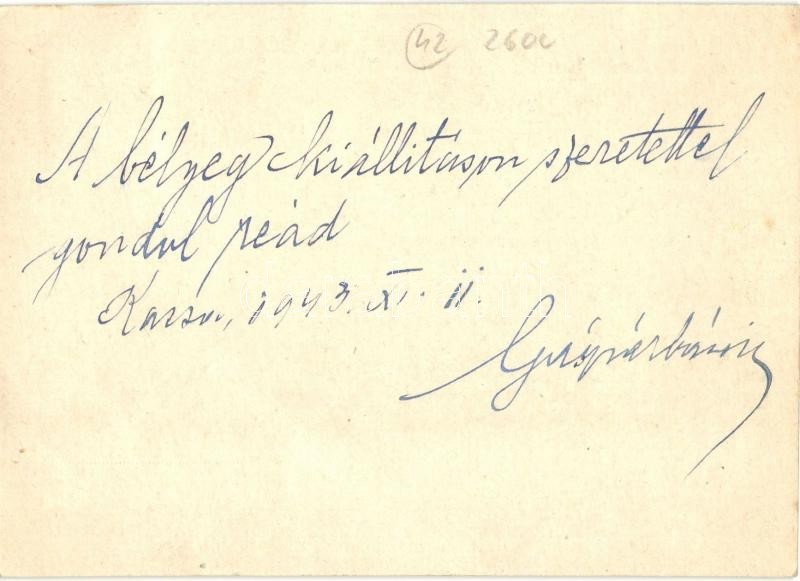 42 260c
A bélyeg kiállitáson szeretettel
gondol reád
Kassa, 1943. XI. 11.
Gáspárbácsi